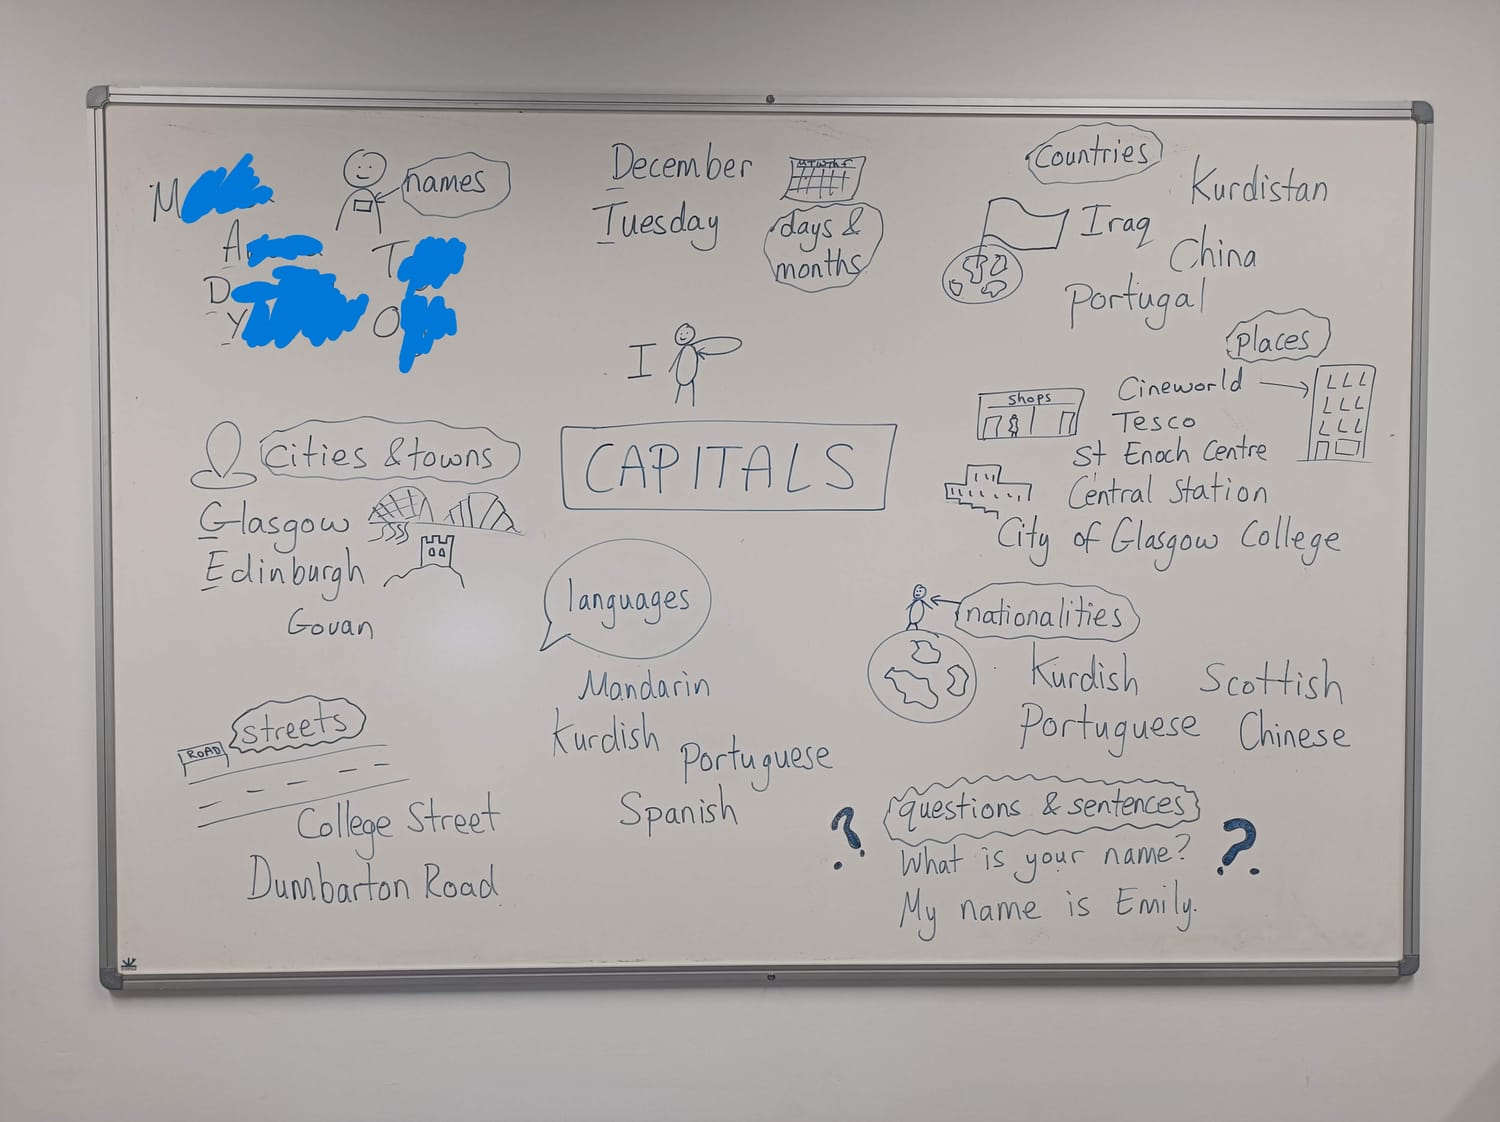 names
M
A
T
D
Y
O
December
Tuesday
M T W Th F
days &
months
Countries
Kurdistan
Iraq
China
Portugal
I
Places
Shops
Cineworld
Tesco
St Enoch Centre
Central Station
City of Glasgow College
CAPITALS
Cities & towns
Glasgow
Edinburgh
Govan
languages
Mandarin
Kurdish
Portuguese
Spanish
nationalities
Kurdish
Scottish
Portuguese
Chinese
streets
ROAD
College Street
Dumbarton Road
questions & sentences
? ?
What is your name?
My name is Emily.